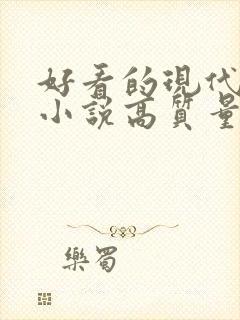 好看的現代
小說高質量
樂蜀